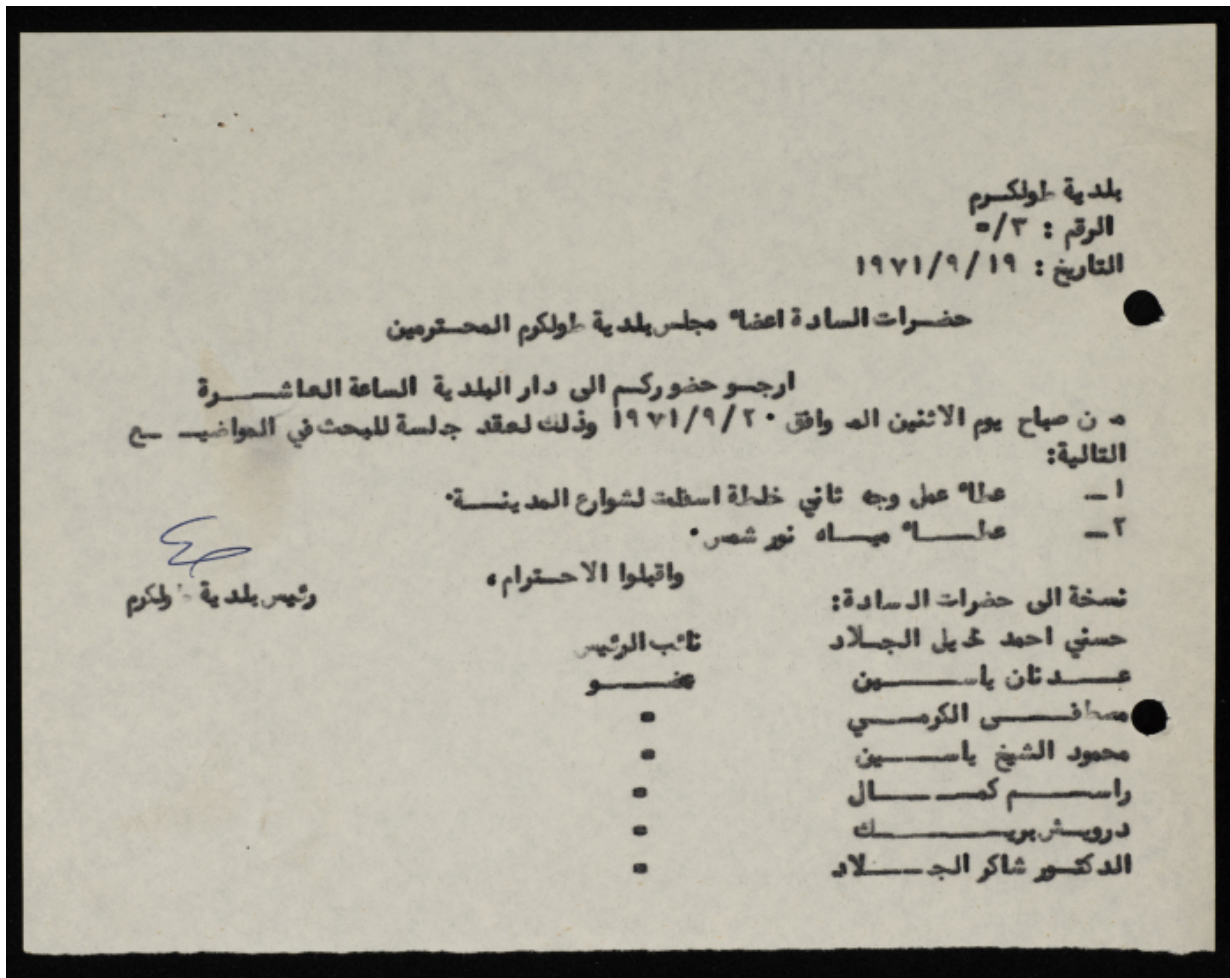 بلدية طولكرم
الرقم : ٥/٣
التاريخ : ١٩٧١/٩/١٩
حضرات السادة اعضاء مجلس بلدية طولكرم المحترمين
ارجو حضوركم الى دار البلدية الساعة العاشرة
من صباح يوم الاثنين الموافق ١٩٧١/٩/٢٠ وذلك لعقد جلسة للبحث في المواضيع
التالية:
١ـ عطاء عمل وجه ثاني خلطة اسفلت لشوارع المدينة.
٢ـ عطاء مياه نور شمس.
واقبلوا الاحترام،
رئيس بلدية طولكرم
نسخة الى حضرات السادة:
حسني احمد خليل الجلاد نائب الرئيس
عدنان ياسين عضو
مصطفى الكرمي "
محمود الشيخ ياسين "
راسم كمال "
درويش بريك "
الدكتور شاكر الجلاد "